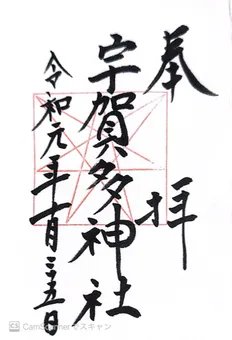 奉拝
宇賀多神社
令和元年十一月三五日
CamScanner でスキャン